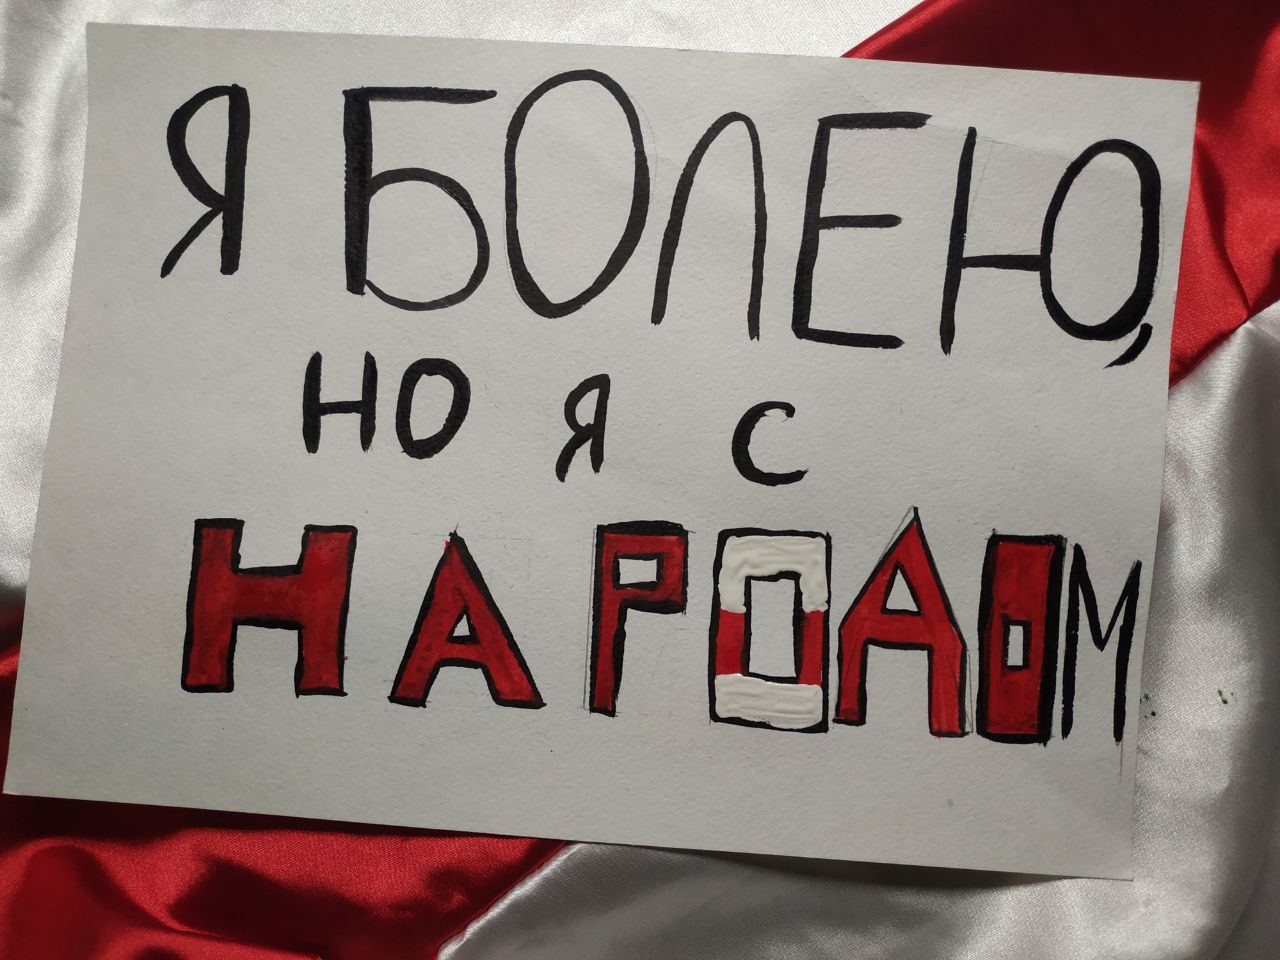 Я БОЛЕЮ,
НО Я С
НАРОДОМ